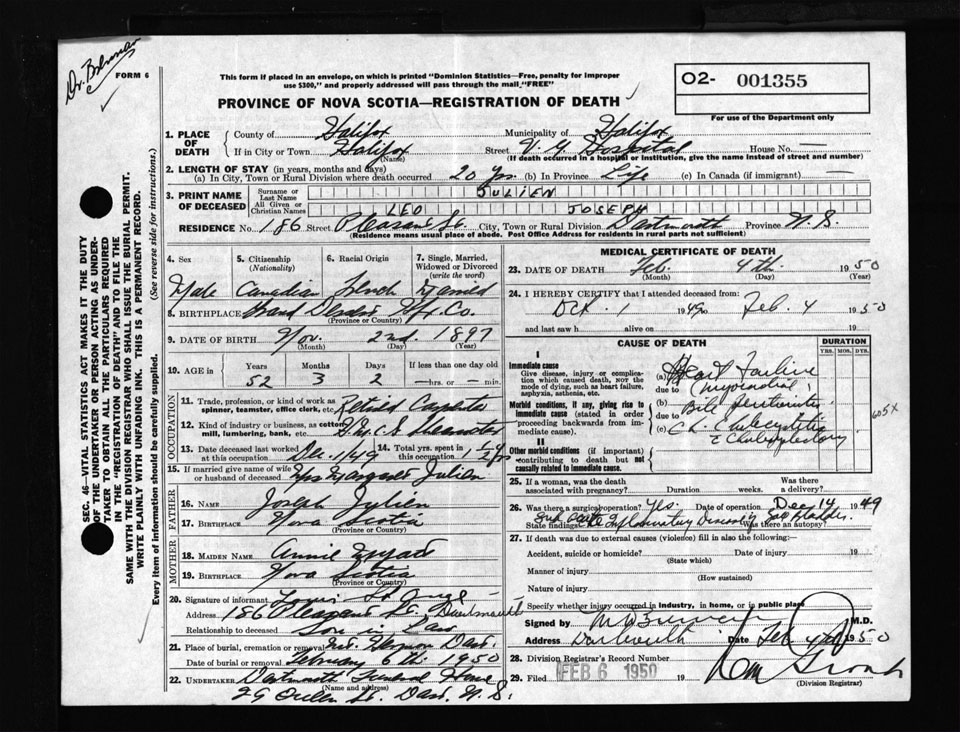 Dr. Brennan
FORM 6
This form if placed in an envelope, on which is printed "Dominion Statistics—Free, penalty for improper
use $300," and properly addressed will pass through the mail "FREE"
PROVINCE OF NOVA SCOTIA—REGISTRATION OF DEATH
O2- 001355
For use of the Department only
1. PLACE OF DEATH County of Halifax Municipality of Halifax
If in City or Town Halifax (Name) Street V. G. Hospital House No. —
(If death occurred in a hospital or institution, give the name instead of street and number)
2. LENGTH OF STAY (in years, months and days)
(a) In City, Town or Rural Division where death occurred 20 Yrs (b) In Province Life (c) In Canada (if immigrant) —
3. PRINT NAME OF DECEASED Surname or Last Name JULIEN
All Given or Christian Names LEO JOSEPH
RESIDENCE No. 186 Street Pleasant St. City, Town or Rural Division Dartmouth Province N. S.
(Residence means usual place of abode. Post Office Address for residents in rural parts not sufficient)
4. Sex 5. Citizenship (Nationality) 6. Racial Origin 7. Single, Married, Widowed or Divorced (write the word)
Male Canadian French Married
8. BIRTHPLACE Grand Desert Hfx. Co.
(Province or Country)
9. DATE OF BIRTH Nov. 2nd. 1897
(Month) (Day) (Year)
10. AGE in Years Months Days If less than one day
52 3 2 —hrs. or — min.
OCCUPATION
11. Trade, profession, or kind of work as spinner, teamster, office clerk, etc. Retired Carpenter
12. Kind of industry or business, as cotton mill, lumbering, bank, etc.
13. Date deceased last worked at this occupation Dec. 1/49 14. Total yrs. spent in this occupation
15. If married give name of wife or husband of deceased Mrs Margaret Julien
FATHER
16. NAME Joseph Julien
17. BIRTHPLACE Nova Scotia
(Province or Country)
MOTHER
18. MAIDEN NAME Annie Myatt
19. BIRTHPLACE Nova Scotia
(Province or Country)
20. Signature of informant Louis St Onge
Address 186 Pleasant St. Dartmouth
Relationship to deceased Son in Law
21. Place of burial, cremation or removal Mt. Hermon Dart.
Date of burial or removal February 6th 1950
22. UNDERTAKER Dartmouth Funeral Home
(Name and address)
29 Queen St. Dart. N. S.
MEDICAL CERTIFICATE OF DEATH
23. DATE OF DEATH Feb. 4th 1950
(Month) (Day) (Year)
24. I HEREBY CERTIFY that I attended deceased from:
Oct. 1 1949 to Feb. 4 1950
and last saw h alive on 19
CAUSE OF DEATH
DURATION
YRS. MOS. DYS.
I
Immediate cause
Give disease, injury or complication which caused death, NOT the mode of dying, such as heart failure, asphyxia, asthenia, etc.
(a) Heart Failure
due to Myocardial
Morbid conditions, if any, giving rise to immediate cause (stated in order proceeding backwards from immediate cause).
(b) Bile Peritonitis
due to
(c) Ch. Cholecystitis
605X
II
Other morbid conditions (if important) contributing to death but not causally related to immediate cause.
25. If a woman, was the death associated with pregnancy? Duration weeks. Was there a delivery?
26. Was there a surgical operation? Yes. Date of operation Dec 14 1949
State findings Sub acute Inflammatory Was there an autopsy?
27. If death was due to external causes (violence) fill in also the following:
Accident, suicide or homicide? Date of injury 19
(State which)
Manner of injury
(How sustained)
Nature of injury
Specify whether injury occurred in industry, in home, or in public place
Signed by M.D.
Address Dartmouth Date Feb 4th 1950
28. Division Registrar's Record Number
29. Filed FEB 6 1950 19
(Division Registrar)
SEC. 46—VITAL STATISTICS ACT MAKES IT THE DUTY
OF THE UNDERTAKER OR PERSON ACTING AS UNDERTAKER
TO OBTAIN ALL THE PARTICULARS REQUIRED
IN THE "REGISTRATION OF DEATH" AND TO FILE THE
SAME WITH THE DIVISION REGISTRAR WHO SHALL ISSUE THE BURIAL PERMIT.
WRITE PLAINLY WITH UNFADING INK. THIS IS A PERMANENT RECORD.
Every item of information should be carefully supplied. (See reverse side for instructions.)